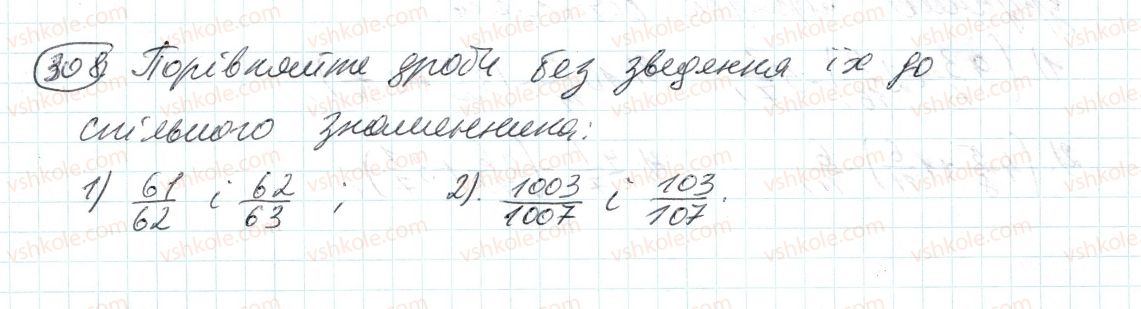 308 Порівняйте дроби без зведення їх до
спільного знаменника:
1) 61/62 і 62/63 ; 2). 1003/1007 і 103/107.
vshkole.com